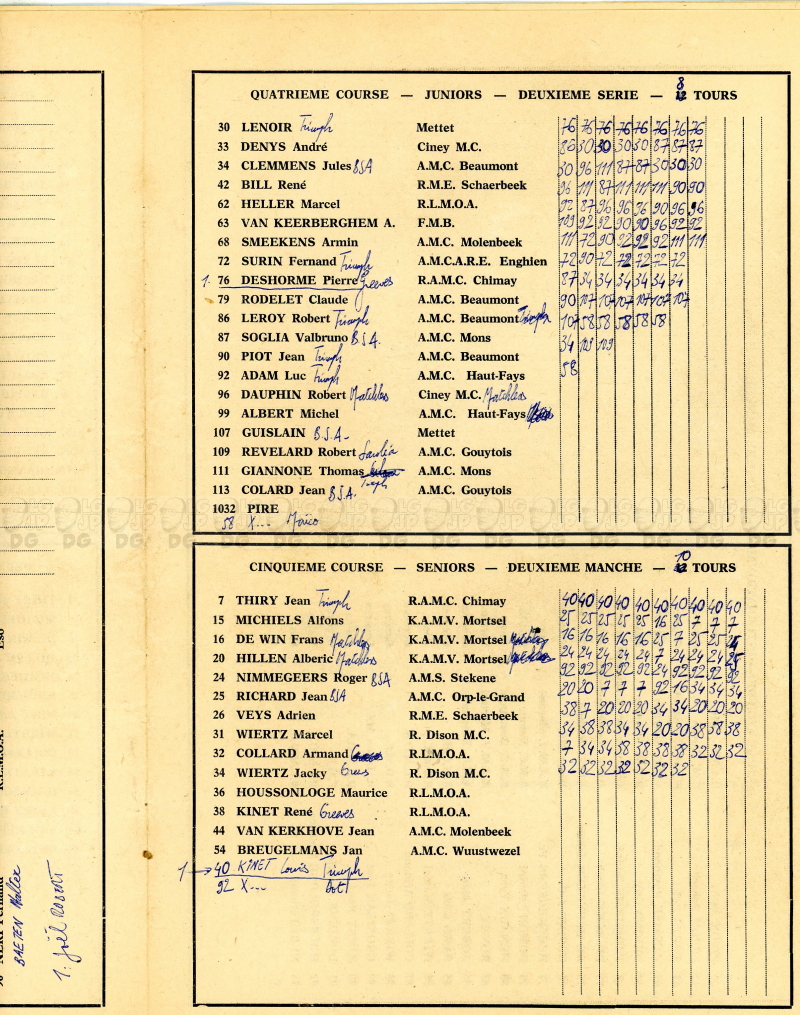 QUATRIEME COURSE — JUNIORS — DEUXIEME SERIE — 8 12 TOURS
30 LENOIR Triumph Mettet 76 76 76 76 76 76 76 76
33 DENYS André Ciney M.C. 30 30 30 30 87 87 87
34 CLEMMENS Jules BSA A.M.C. Beaumont 30 96 111 87 87 30 30 30
42 BILL René R.M.E. Schaerbeek 96 111 87 111 111 111 90 90
62 HELLER Marcel R.L.M.O.A. 92 87 96 96 96 90 96 96
63 VAN KEERBERGHEM A. F.M.B. 109 92 92 90 90 96 92 92
68 SMEEKENS Armin A.M.C. Molenbeek 111 72 90 92 92 92 111 111
72 SURIN Fernand Triumph A.M.C.A.R.E. Enghien 72 90 72 72 72 72 72
1. 76 DESHORME Pierre Greeves R.A.M.C. Chimay 87 34 34 34 34 34 34
79 RODELET Claude A.M.C. Beaumont 90 107 107 107 107 107 107
86 LEROY Robert Triumph A.M.C. Beaumont 107 58 58 58 58 58
87 SOGLIA Valbruno B.S.A. A.M.C. Mons 34 109 109
90 PIOT Jean Triumph A.M.C. Beaumont 58
92 ADAM Luc Triumph A.M.C. Haut-Fays
96 DAUPHIN Robert Matchless Ciney M.C. Matchless
99 ALBERT Michel A.M.C. Haut-Fays
107 GUISLAIN B.S.A. Mettet
109 REVELARD Robert Sarolea A.M.C. Gouytois
111 GIANNONE Thomas Triumph A.M.C. Mons
113 COLARD Jean B.S.A. A.M.C. Gouytois
1032 PIRE
58 X... Marico
DG DG DG DG DG DG DG DG
CINQUIEME COURSE — SENIORS — DEUXIEME MANCHE — 10 12 TOURS
7 THIRY Jean Triumph R.A.M.C. Chimay 40 40 40 40 40 40 40 40 40 40
15 MICHIELS Alfons K.A.M.V. Mortsel 25 25 25 25 25 16 25 7 7 7
16 DE WIN Frans Matchless K.A.M.V. Mortsel 16 16 16 16 16 25 7 25 25
20 HILLEN Alberic Matchless K.A.M.V. Mortsel 24 24 24 24 24 7 24 24 24 25
24 NIMMEGEERS Roger BSA A.M.S. Stekene 92 92 92 92 92 24 92 92 92 92
25 RICHARD Jean BSA A.M.C. Orp-le-Grand 20 20 7 7 7 92 16 34 34 34
26 VEYS Adrien R.M.E. Schaerbeek 38 7 20 20 20 34 34 20 20 20
31 WIERTZ Marcel R. Dison M.C. 34 38 38 34 34 20 20 38 38 38
32 COLLARD Armand R.L.M.O.A. 7 34 34 38 38 38 38 32 32 32
34 WIERTZ Jacky R. Dison M.C. 32 32 32 32 32 32 32
36 HOUSSONLOGE Maurice R.L.M.O.A.
38 KINET René Greeves R.L.M.O.A.
44 VAN KERKHOVE Jean A.M.C. Molenbeek
54 BREUGELMANS Jan A.M.C. Wuustwezel
1 → 40 KINET Louis Triumph
92 X... Dot
R.L.M.O.A.
BAETEN Walter
1. Joël ROBERT